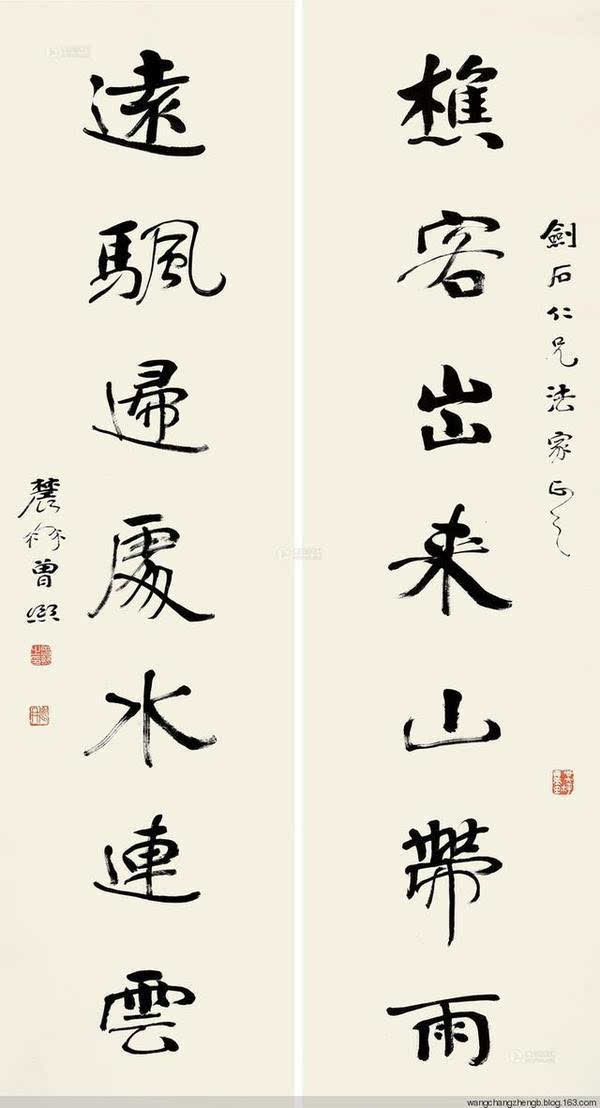 劍石仁兄法家正之
樵客岀来山帶雨
遠颿歸處水連雲
農髯曾熙
wangchangzhengb.blog.163.com